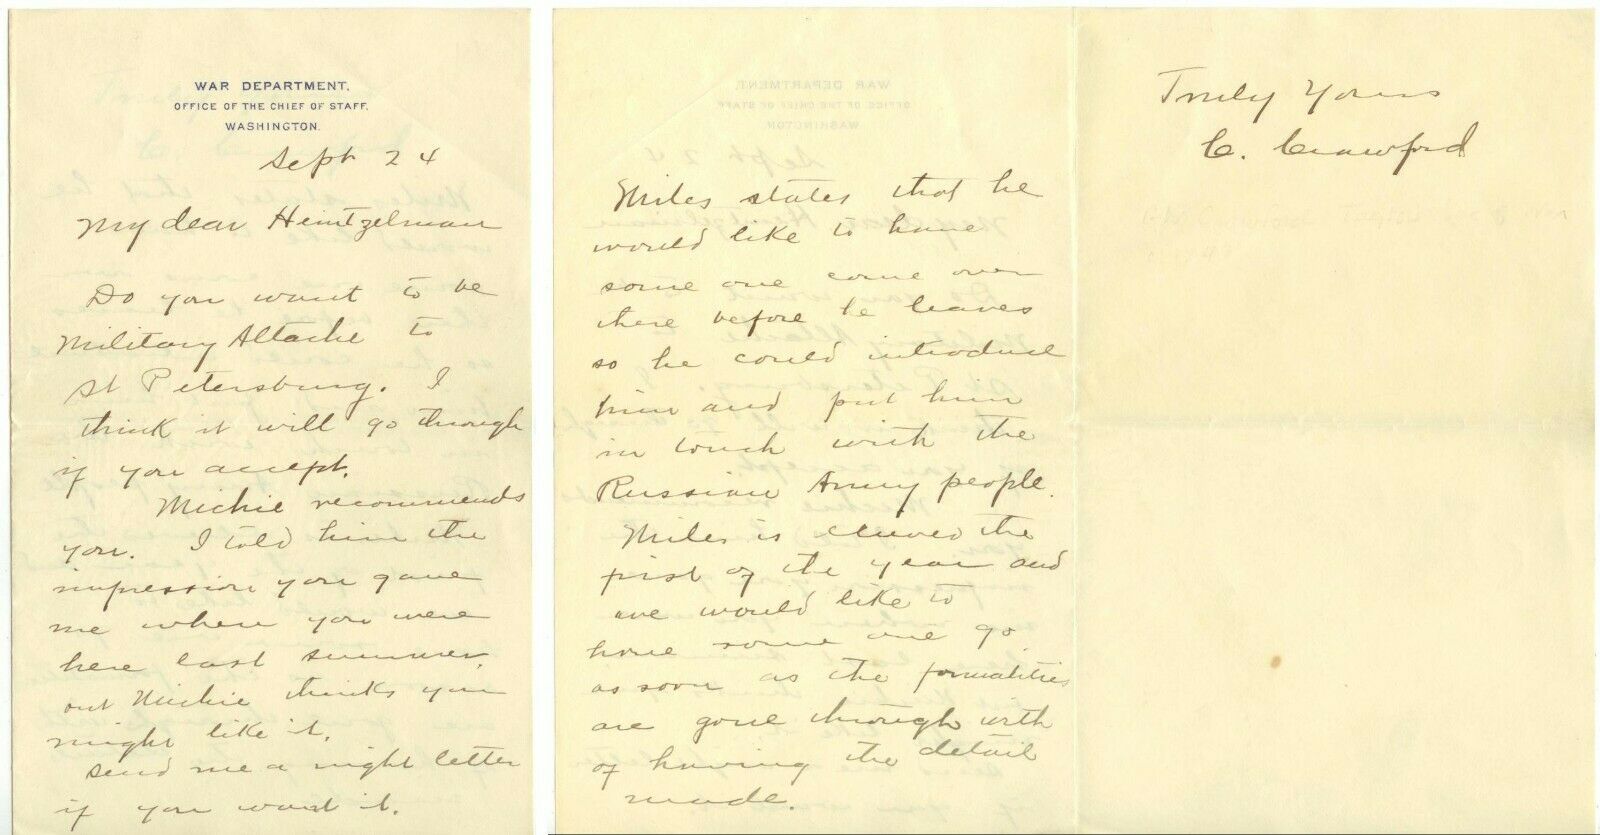 WAR DEPARTMENT,
OFFICE OF THE CHIEF OF STAFF,
WASHINGTON.
Sept 24
My dear Heintzelman
Do you want to be
Military Attache to
St Petersburg. I
think it will go through
if you accept.
Michie recommends
you. I told him the
impression you gave
me when you were
here last summer,
but Michie thinks you
might like it.
Send me a night letter
if you want it.
Miles states that he
would like to have
some one come over
there before he leaves
so he could introduce
him and put him
in touch with the
Russian Army people.
Miles is relieved the
first of the year and
we would like to
have some one go
as soon as the formalities
are gone through with
of having the detail
made.
Truly Yours
C. Crawford